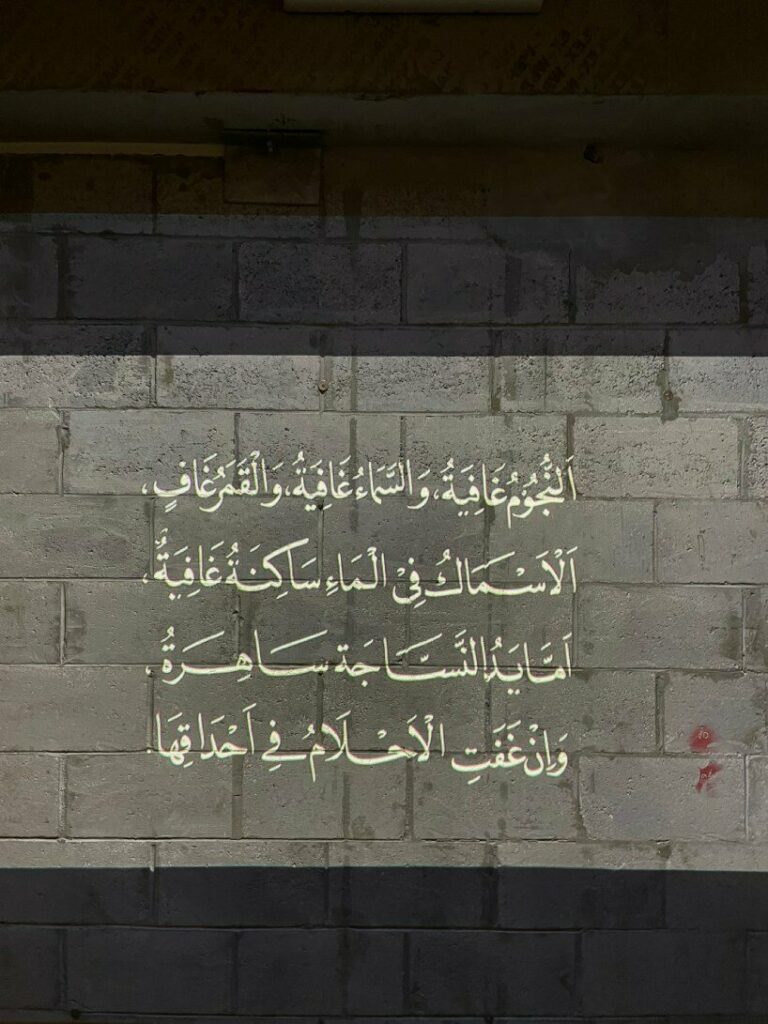 اَلنُّجُوْمُ غَافِيَةُ، وَالسَّمَاءُ غَافِيَةُ، وَالْقَمَرُ غَافٍ،
اَلْاَسْمَاكُ فِيْ الْمَاءِ سَاكِنَةُ غَافِيَةٌ،
اَمَّا يَدُ النَّسَّاجَة سَاهِرَةُ،
وَاِنْ غَفَتِ الْاَحْلَامُ فِي اَحْدَاقِهَا.